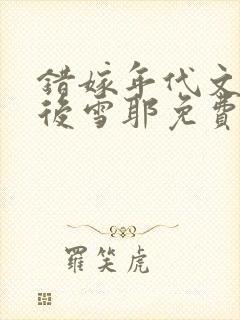 錯嫁年代文
後雪耶免費
羅笑虎